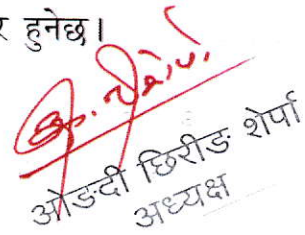 र हुनेछ।
ओङदी छिरीङ शेर्पा
अध्यक्ष